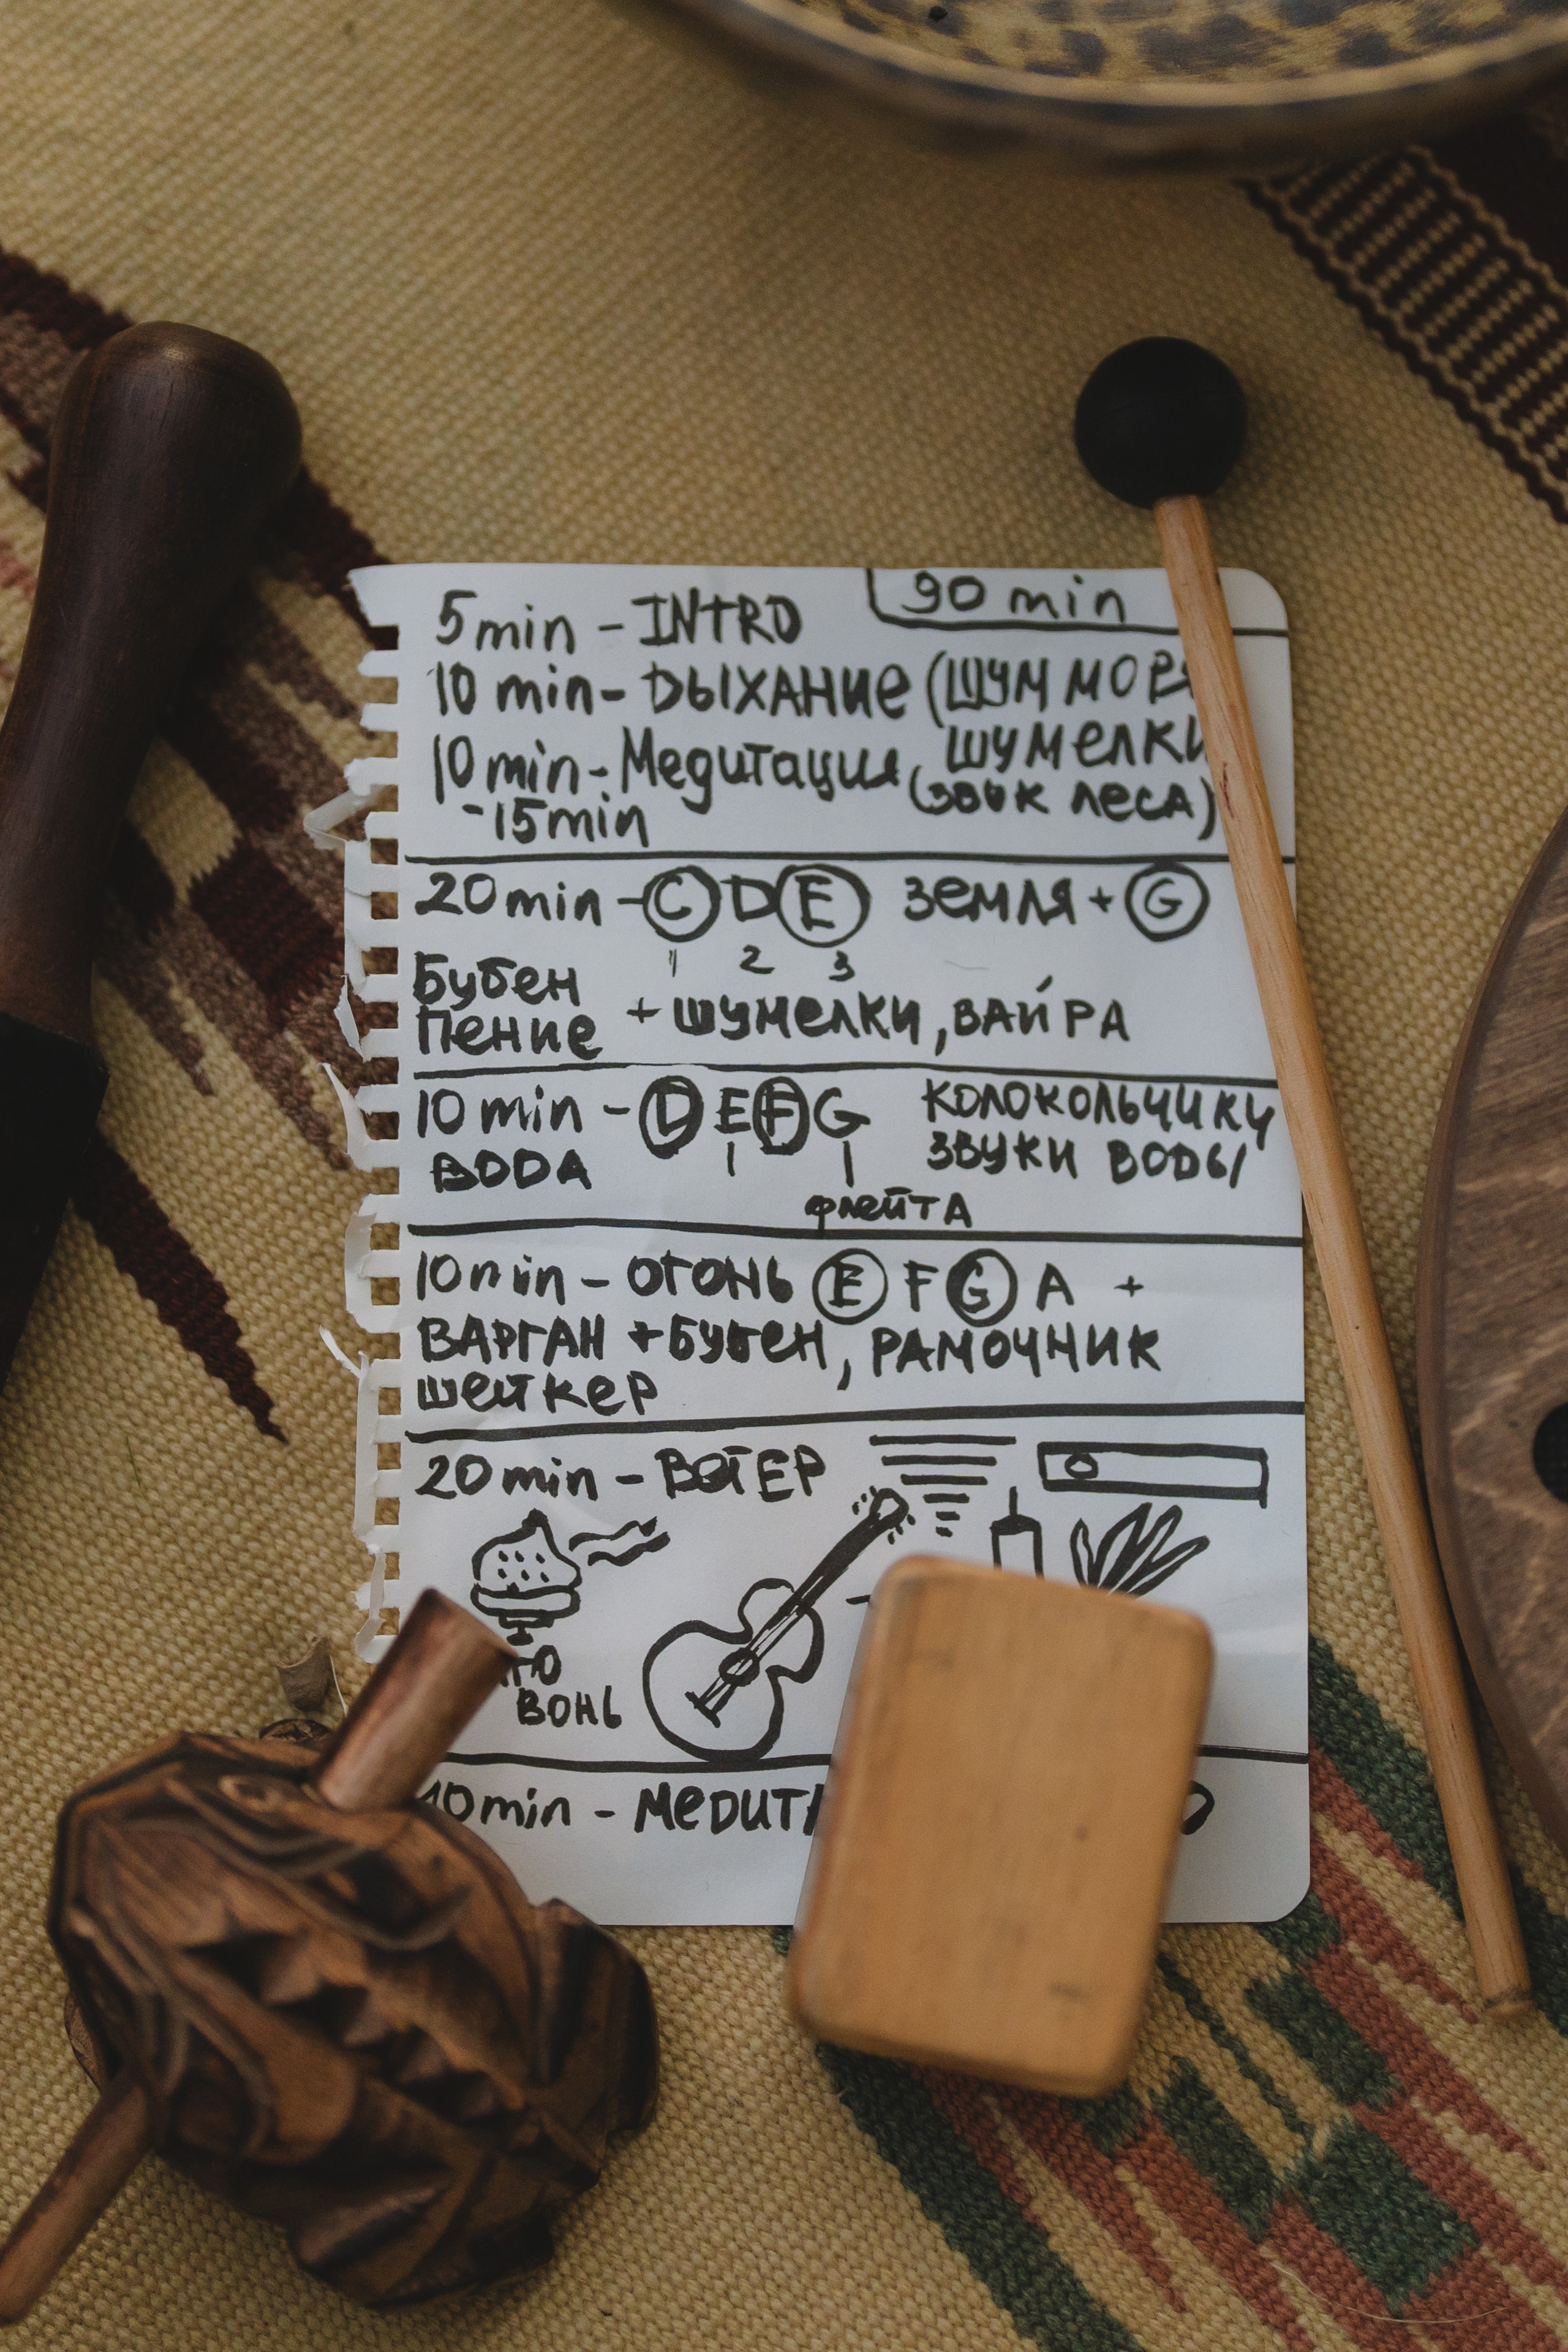 90 min
5 min - INTRO
10 min - ДЫХАНИЕ (ШУМ
10 min - Медитация, ШУМЕЛКИ
-15 min (ЗВУК ЛЕСА)
20 min - C D E ЗЕМЛЯ + G
1 2 3
БУБЕН
ПЕНИЕ + ШУМЕЛКИ, ВАЙРА
10 min - D E F G КОЛОКОЛЬЧИКИ
ВОДА ЗВУКИ ВОДЫ
ФЛЕЙТА
10 min - ОГОНЬ E F G A +
ВАРГАН + БУБЕН, РАМОЧНИК
ШЕЙКЕР
20 min - ВЕТЕР
ВОНЬ
10 min -